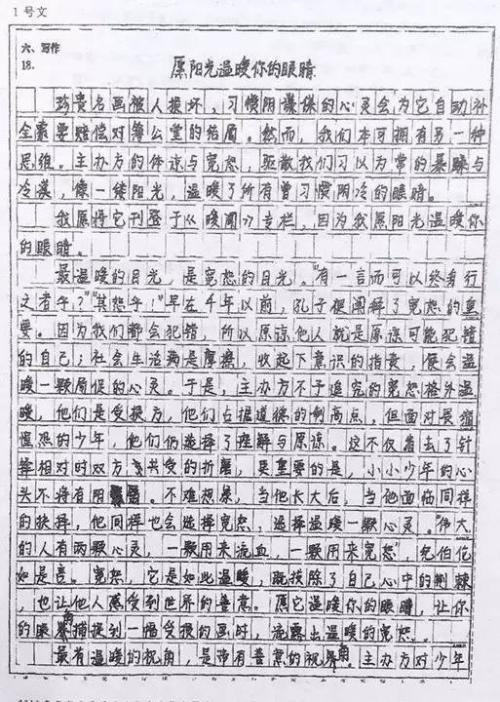 1 号文
六、写作
18.
愿阳光温暖你的眼睛
珍贵名画被人损坏，习惯阴的心灵会为它自动补
全索要赔偿对簿公堂的结局。然而，我们本可拥有另一种
思维。主办方的体谅与宽恕，驱散我们习以为常的暴躁与
冷漠，像一缕阳光，温暖了所有曾习惯阴冷的眼睛。
我愿将它刊登于《暖闻》专栏，因为我愿阳光温暖你
的眼睛。
最温暖的目光，是宽恕的目光。“有一言而可以终身行
之者乎？”“其恕乎！”早在千年以前，孔子便阐释了宽恕的重
要。因为我们都会犯错，所以原谅他人就是原谅可能犯错
的自己；社会生活满是摩擦，收起下意识的指责，便会温
暖一颗局促的心灵。于是，主办方不予追究的宽恕格外温
暖，他们是受损方，他们占据道德的制高点，但面对畏缩
惶恐的少年，他们仍选择了理解与原谅。这不仅省去了针
锋相对时双方共受的折磨，更重要的是，小小少年的心
头不将有阴。不难想象，当他长大后，当他面临同样
的抉择，他同样也会选择宽恕，选择温暖一颗心灵。“伟大
的人有两颗心灵，一颗用来流血，一颗用来宽恕”，纪伯伦
如是言。宽恕，它是如此温暖，既拔除了自己心中的荆棘
，也让他人感受到世界的善意。愿它温暖你的眼睛，让你
的眼捕捉到一幅受损的画时，流露出温暖的宽恕。
最有温暖的视角，是带有善意的视角。主办方对少年